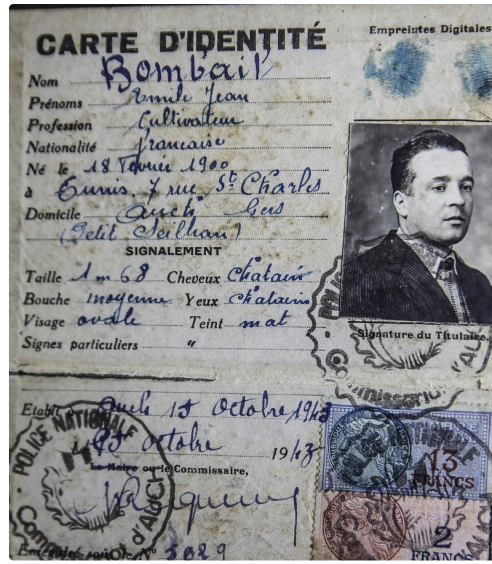 CARTE D'IDENTITÉ
Empreintes Digitales
Nom Bombail
Prénoms Emile Jean
Profession Cultivateur
Nationalité française
Né le 18 Février 1900
à 7 rue St Charles
Domicile Auch Gers
(Petit Seilhan)
SIGNALEMENT
Taille 1 m 68 Cheveux chatain
Bouche moyenne Yeux chatains
Visage ovale Teint mat
Signes particuliers "
Signature du Titulaire,
Etabli Auch 15 octobre 1943
Le 15 octobre 1943
Le Maire ou le Commissaire,
POLICE NATIONALE
Commissariat d'AUCH
13
FRANCS
2
FRANCS
Enregistré sous le N° 5029